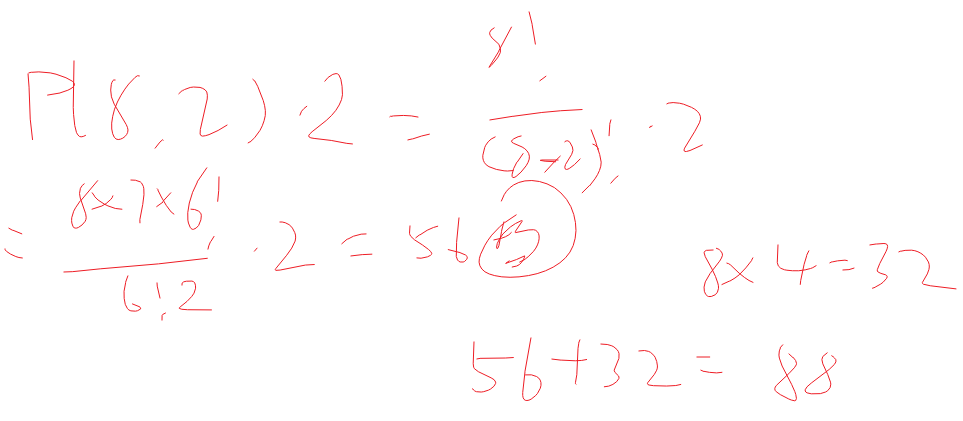 P(8,2)·2 = 8!/(8-2)! ·2
= 8×7×6!/6!2 ·2 = 56
8×4=32
56+32=88